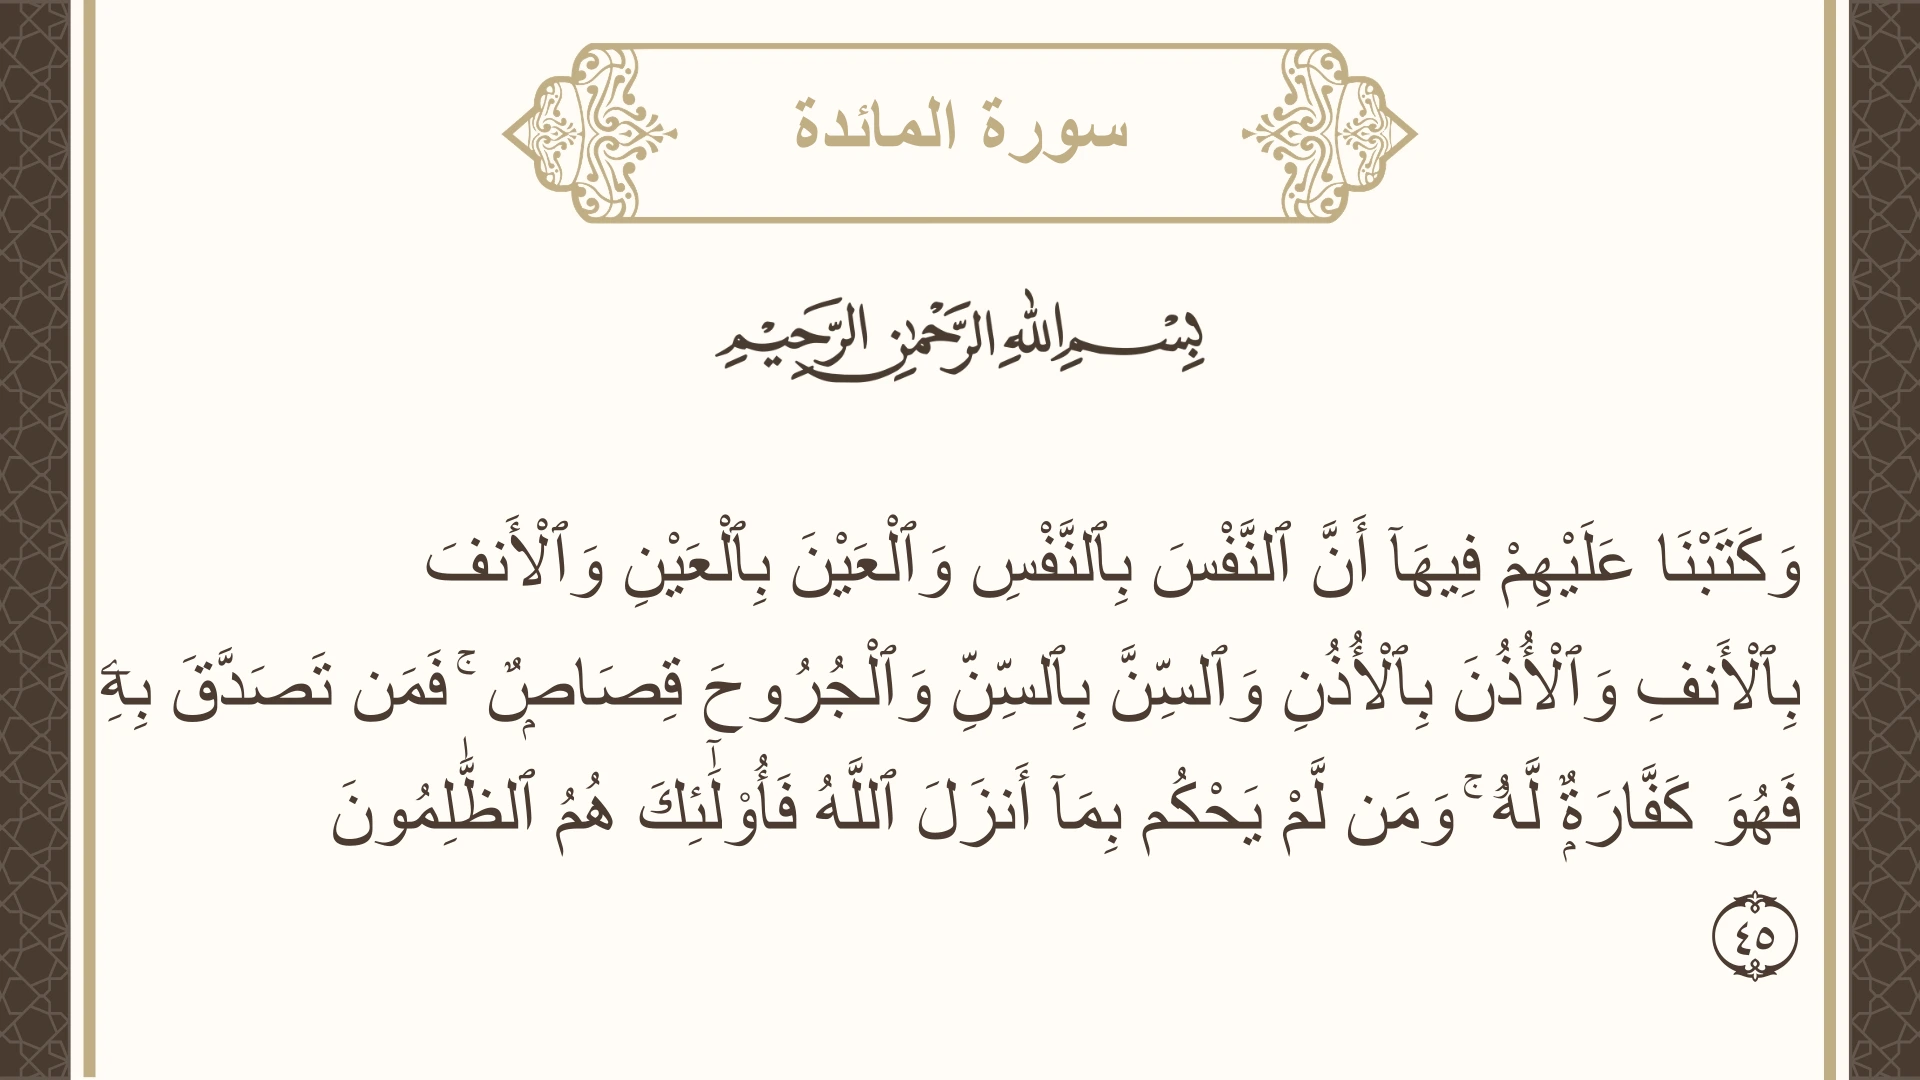 سورة المائدة
بِسْمِ اللهِ الرَّحْمٰنِ الرَّحِيْمِ
وَكَتَبْنَا عَلَيْهِمْ فِيهَآ أَنَّ ٱلنَّفْسَ بِٱلنَّفْسِ وَٱلْعَيْنَ بِٱلْعَيْنِ وَٱلْأَنفَ
بِٱلْأَنفِ وَٱلْأُذُنَ بِٱلْأُذُنِ وَٱلسِّنَّ بِٱلسِّنِّ وَٱلْجُرُوحَ قِصَاصٌۭ ۚ فَمَن تَصَدَّقَ بِهِۦ
فَهُوَ كَفَّارَةٌۭ لَّهُۥ ۚ وَمَن لَّمْ يَحْكُم بِمَآ أَنزَلَ ٱللَّهُ فَأُو۟لَٰٓئِكَ هُمُ ٱلظَّٰلِمُونَ
٤٥